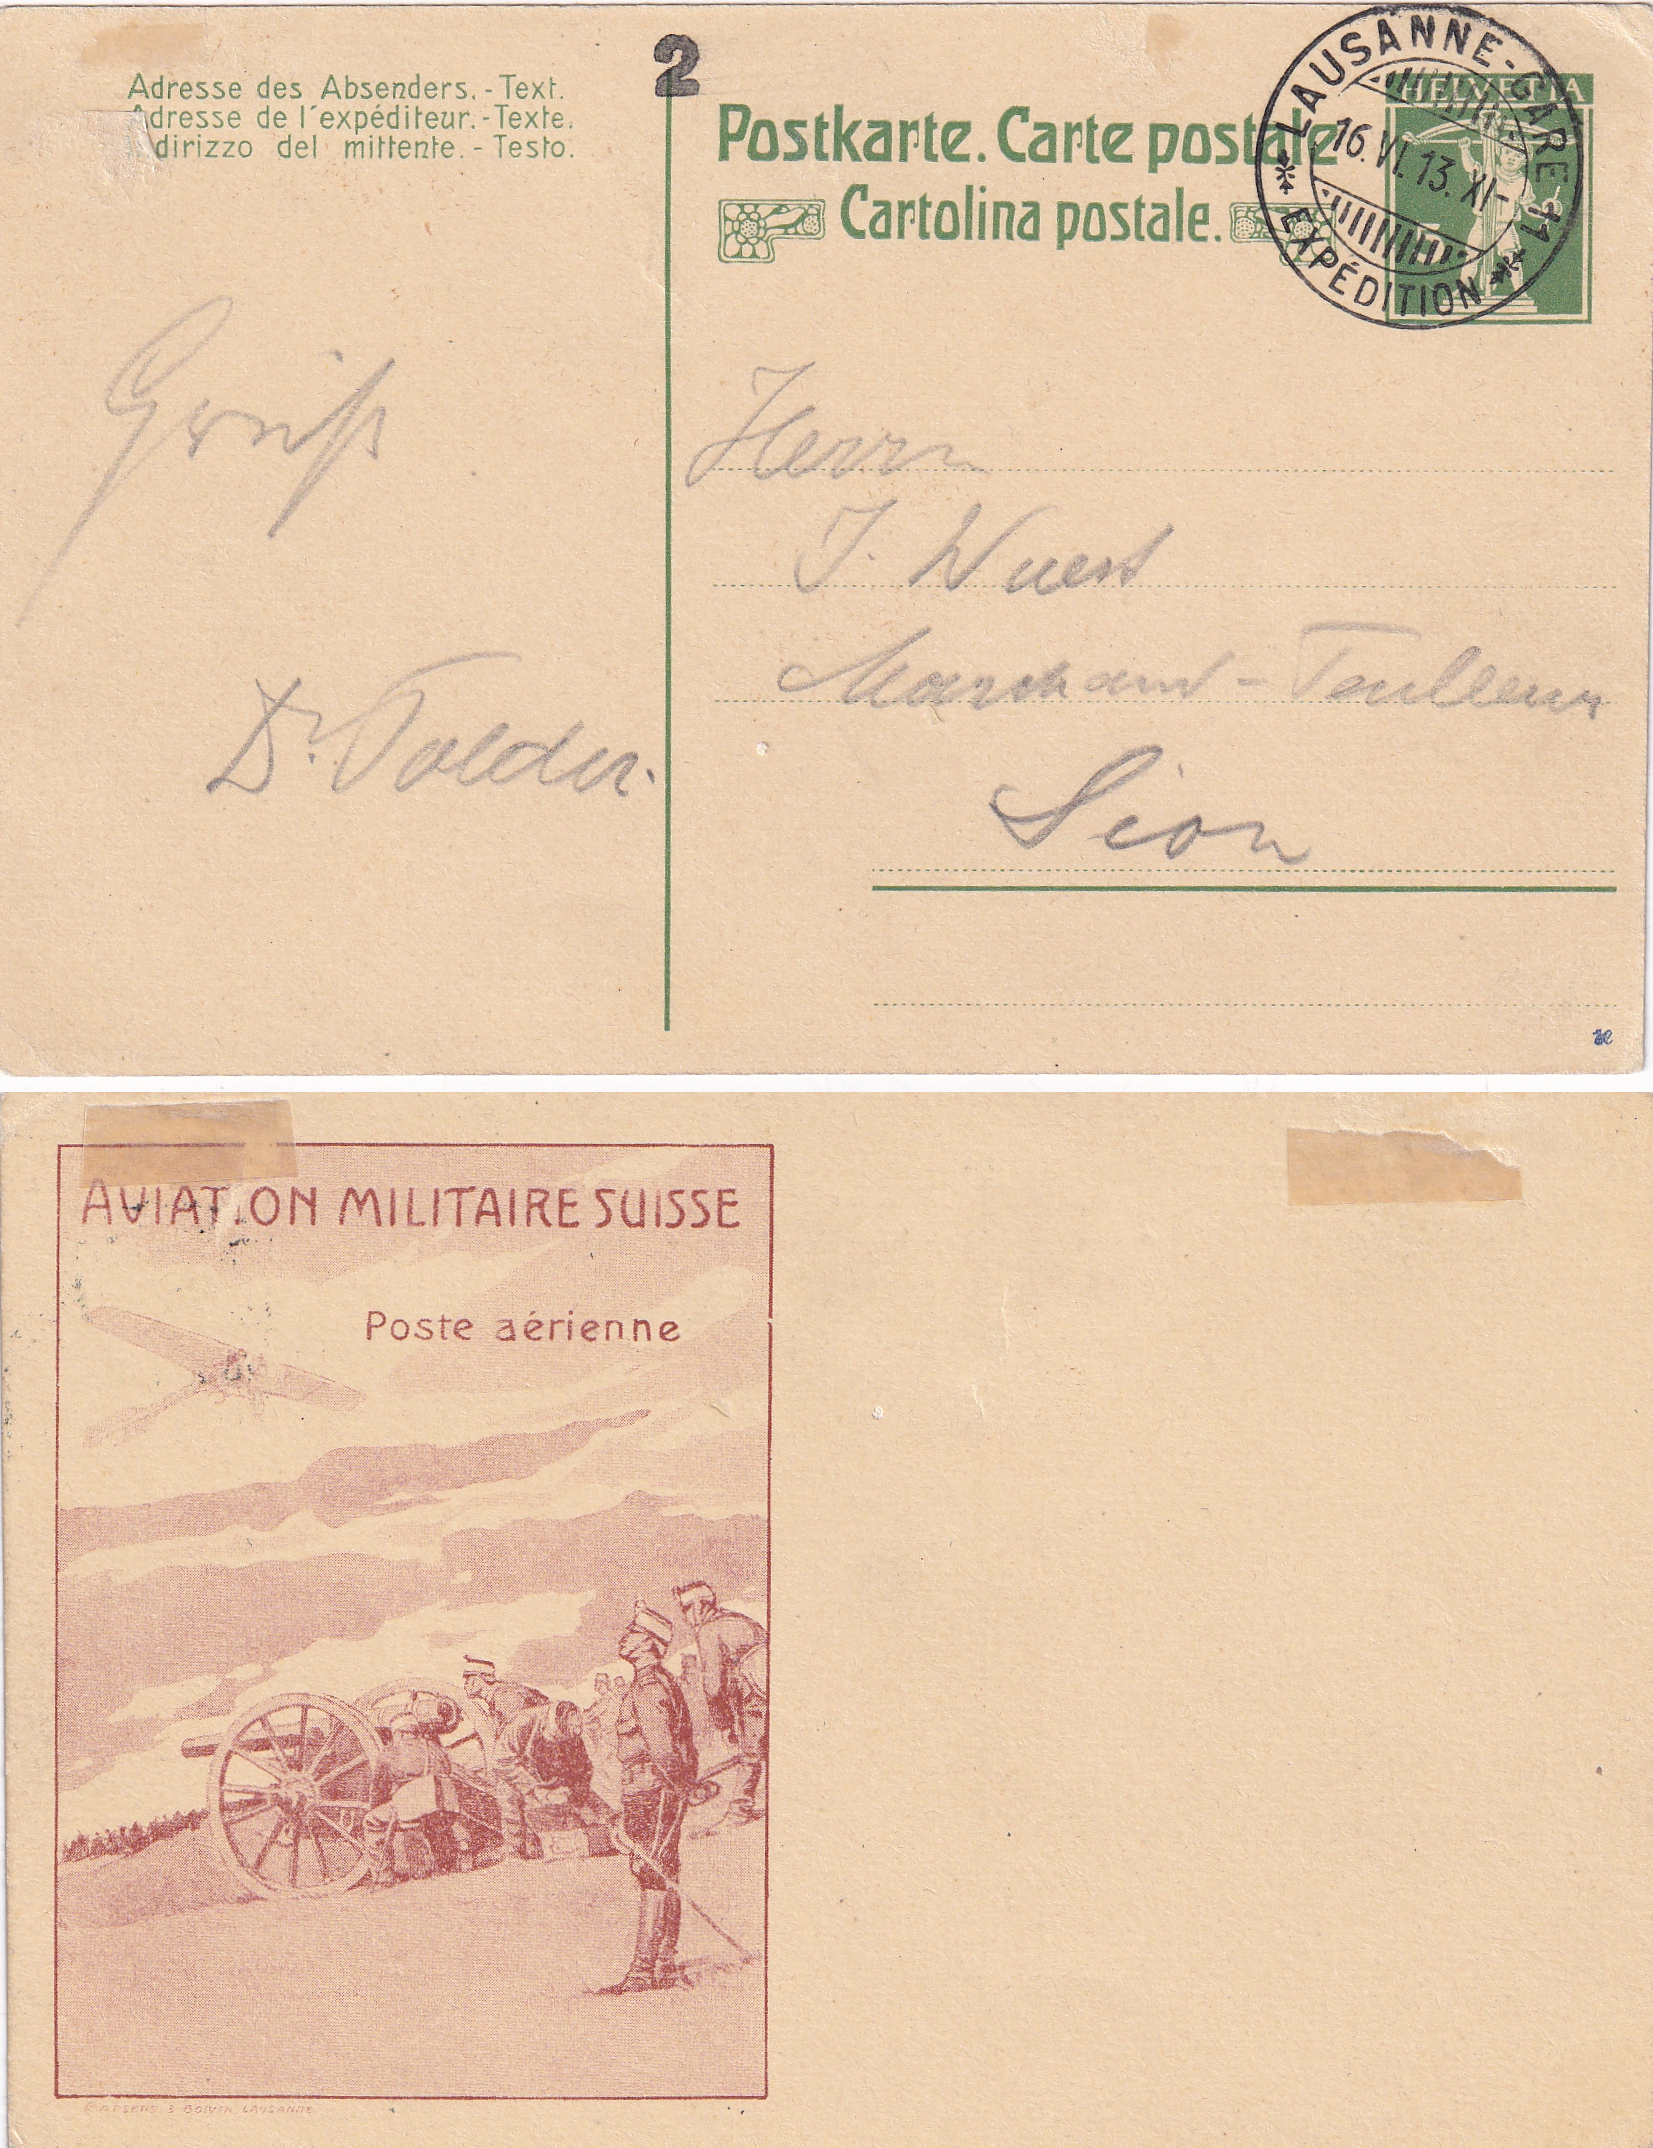 Adresse des Absenders. - Text.
Adresse de l'expéditeur. - Texte.
dirizzo del mittente. - Testo.
2
Postkarte. Carte postale
Cartolina postale.
HELVETIA
LAUSANNE-GARE
16.VI.13. XI-11
EXPÉDITION
Gruß
Dr. Tolder.
Herrn
J. Wuest
Marchand-Tailleur
Sion
AVIATION MILITAIRE SUISSE
Poste aérienne
BOIVIN, LAUSANNE